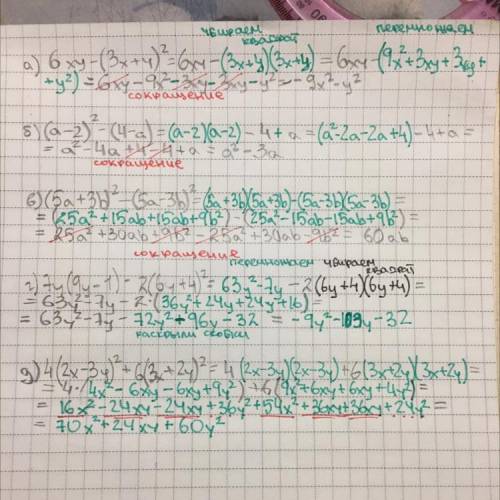 убираем
квадрат
перемножаем
а) 6xy-(3x+y)²=6xy-(3x+y)(3x+y)=6xy-(9x²+3xy+3xy+
+y²)=6xy-9x²-3xy-3xy-y²=-9x²-y²
сокращение
б)(a-2)²-(4-a)=(a-2)(a-2)-4+a=(a²-2a-2a+4)-4+a=
=a²-4a+4-4+a=a²-3a
сокращение
в)(5a+3b)²-(5a-3b)²=(5a+3b)(5a+3b)-(5a-3b)(5a-3b)=
=(25a²+15ab+15ab+9b²)-(25a²-15ab-15ab+9b²)=
=25a²+30ab+9b²-25a²+30ab-9b²=60ab
сокращение
перемножаем убираем
квадрат
г)7y(9y-1)-2(6y+4)²=63y²-7y-2(6y+4)(6y+4)=
=63y²-7y-2·(36y²+24y+24y+16)=
=63y²-7y-72y²+96y-32=-9y²-103y-32
раскрыли скобки
д)4(2x-3y)²+6(3x+2y)²=4(2x-3y)(2x-3y)+6(3x+2y)(3x+2y)=
=4·(4x²-6xy-6xy+9y²)+6(9x²+6xy+6xy+4y²)=
=16x²-24xy-24xy+36y²+54x²+36xy+36xy+24y²=
=70x²+24xy+60y²